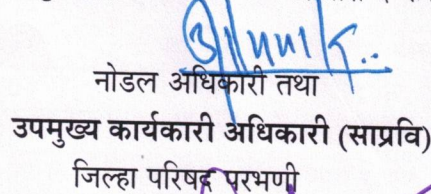 नोडल अधिकारी तथा
उपमुख्य कार्यकारी अधिकारी (साप्रवि)
जिल्हा परिषद परभणी